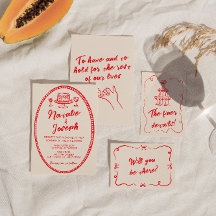 To have and to
hold for the rest
of our lives
Natalie
&
Joseph
The finer
details!
Will you
be there?